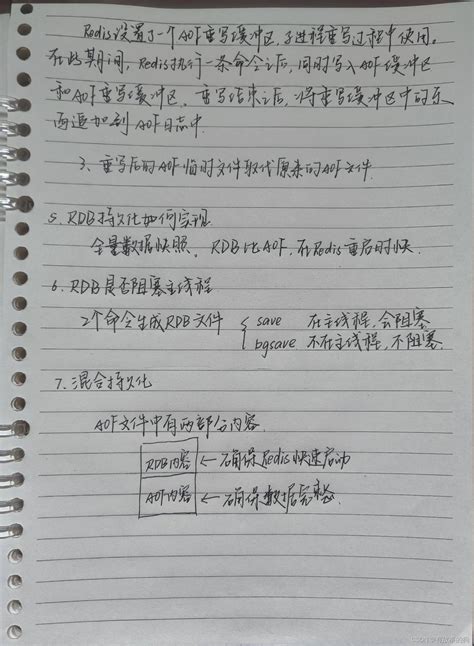 Redis设置了一个AOF重写缓冲区,子进程重写过程中使用。
在此期间,Redis执行一条命令之后,同时写入AOF缓冲区
和AOF重写缓冲区。重写结束之后,将重写缓冲区中的
再追加到AOF日志中.
3、重写后的AOF临时文件取代原来的AOF文件.
5、RDB持久化如何实现
全量数据快照、RDB比AOF,在Redis重启时快.
6、RDB是否阻塞主线程
2个命令生成RDB文件
save 在主线程,会阻塞
bgsave 不在主线程,不阻塞.
7、混合持久化
AOF文件中有两部分内容.
RDB内容 ← 确保Redis快速启动
AOF内容 ← 确保数据完整.